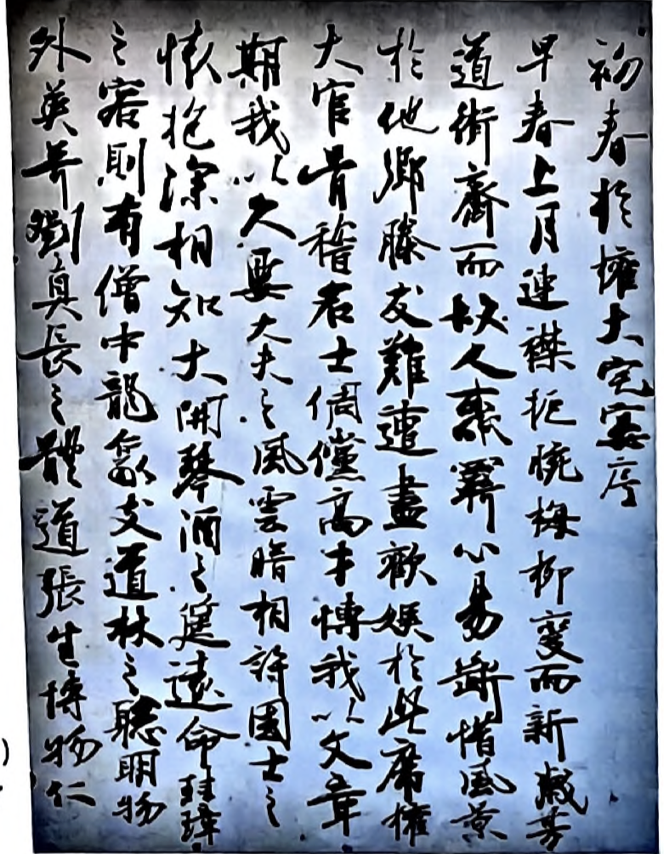 初春於權大宅宴序
早春上月連襟扼腕梅柳變而新歲芳
道術齊而故人聚羇心易斷惜風景
於他鄉勝友難遭盡歡娛於此席權
大官骨稽名士倜儻高才博我以文章
期我以久要大夫之風雲暗相許國士之
懷抱深相知大開琴酒之筵遠命珪璋
之客則有僧中龍象支道林之聰明物
外英奇劉真長之體道張生博物仁